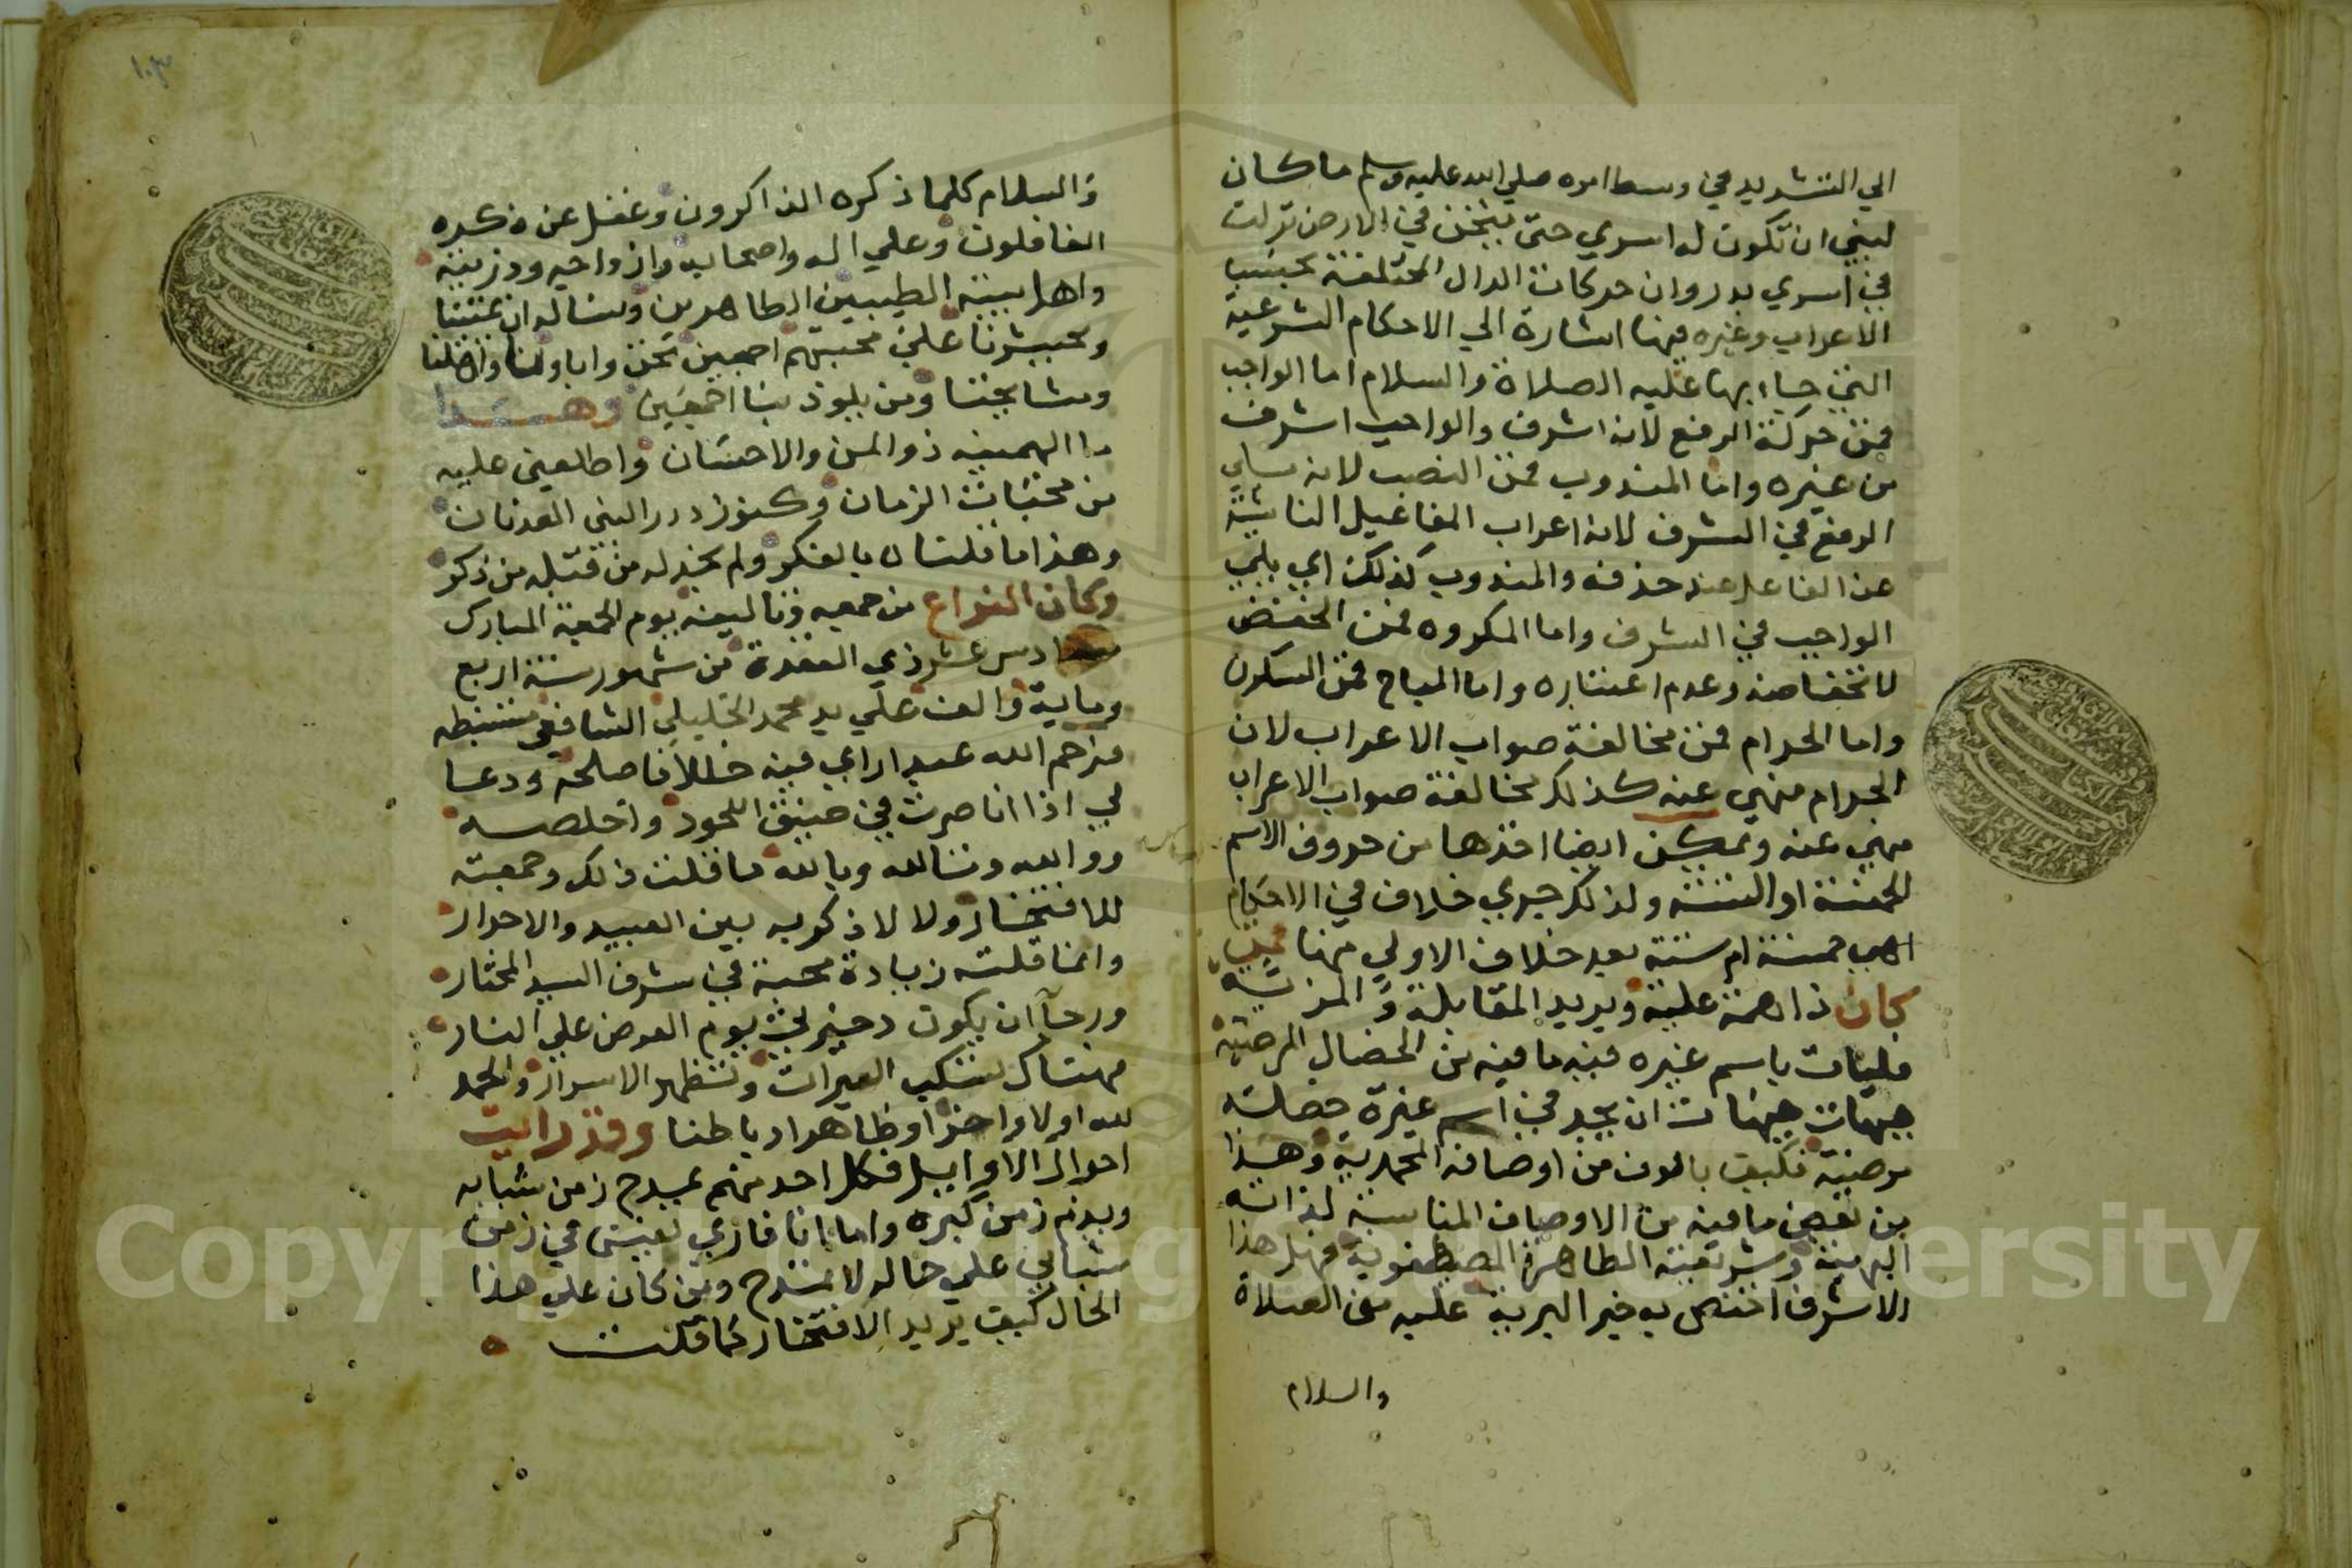 الي التشديد في وسط امره صلي الله عليه وسلم ما كان
لنبي ان تكون له اسري حتي يثخن في الارض نزلت
في اسري بدر وان حركات الدال المختلفة بحسب
الاعراب وغيره فيها اشارة الي الاحكام الشرعية
التي جاء بها عليه الصلاة والسلام اما الواجب
فمن حركة الرفع لانه اشرف والواجب اشرف
من غيره واما المندوب فمن النصب لانه يلي
الرفع في الشرف لانه اعراب المفاعيل النائبة
عن الفاعل عند حذفه والمندوب كذلك اي يلي
الواجب في الشرف واما المكروه فمن الخفض
لانخفاضه وعدم اعتباره واما المباح فمن السكون
واما الحرام فمن مخالفة صواب الاعراب لان
الحرام منهي عنه كذلك مخالفة صواب الاعراب
منهي عنه ويمكن ايضا اخذها من حروف الاسم
الخمسة او الستة ولذلك جري خلاف في الاحكام
اهي خمسة ام ستة بعد خلاف الاولي منها فمن
كان ذا همة علية ويريد المقابلة والمزية
فليات باسم غيره فيه ما فيه من الخصال المرضية
هيهات هيهات ان يجد في اسم غيره خصلة
مرضية فكيف بالوف من اوصافه المحمدية وهذا
من بعض ما فيه من الاوصاف المناسبة لذاته
البهية وشريعته الطاهرة المصطفوية فهل هذا
الا شرف اختص به خير البرية عليه من الصلاة
والسلام
١٠٣
والسلام كلما ذكره الذاكرون وغفل عن ذكره
الغافلون وعلي اله واصحابه وازواجه وذريته
واهل بيته الطيبين الطاهرين ونساله ان يميتنا
ويحشرنا علي محبتهم اجمعين نحن واباؤنا واهلنا
ومشايخنا ومن يلوذ بنا اجمعين وهذا
ما الهمنيه ذو المن والاحسان واطلعني عليه
من مخبات الزمان وكنوز درر النبي العدنان
وهذا ما قلناه بالفكر ولم نجد له من قبله من ذكر
وكان الفراغ من جمعه وتاليفه يوم الجمعة المبارك
سادس عشر ذي القعدة من شهور سنة اربع
وماية والف علي يد محمد الخليلي الشافعي مستنبطه
فرحم الله عبدا راي فيه خللا فاصلحه ودعا
لي اذا انا صرت في ضيق اللحود واخلصه
ووالله وتالله وبالله ما قلت ذلك وجمعته
للافتخار ولا لاذكر به بين العبيد والاحرار
وانما قلته زيادة محبة في شرف السيد المختار
ورجآ ان يكون دخيرتي يوم العرض علي النار
فهناك تسكب العبرات وتظهر الاسرار والحمد
لله اولا واخرا وظاهرا وباطنا وقد رايت
احوال الاوايل فكل احد منهم يمدح زمن شبابه
ويذم زمن كبره واما انا فاري نفسي في زمن
شبابي علي حاله لا تمتدح ومن كان علي هذا
الحال كيف يريد الافتخار كما قلت
Copyright © King Saud University